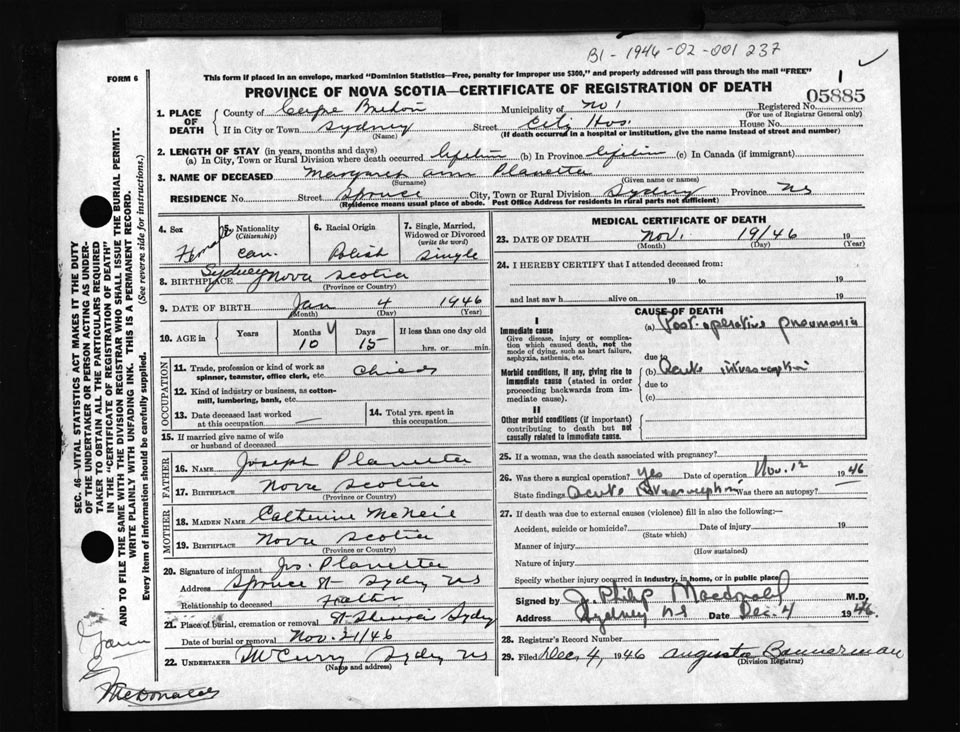 B1-1946-02-001237
1
FORM 6
This form if placed in an envelope, marked "Dominion Statistics—Free, penalty for improper use $300," and properly addressed will pass through the mail "FREE"
PROVINCE OF NOVA SCOTIA—CERTIFICATE OF REGISTRATION OF DEATH
05885
1. PLACE OF DEATH
County of Cape Breton Municipality of No 1 Registered No.
(For use of Registrar General only)
If in City or Town Sydney Street City Hos. House No.
(Name) (If death occurred in a hospital or institution, give the name instead of street and number)
2. LENGTH OF STAY (in years, months and days)
(a) In City, Town or Rural Division where death occurred lifetime (b) In Province lifetime (c) In Canada (if immigrant)
3. NAME OF DECEASED Margaret Ann Planetta
(Surname) (Given name or names)
RESIDENCE No. Street Spruce City, Town or Rural Division Sydney Province NS
(Residence means usual place of abode. Post Office Address for residents in rural parts not sufficient)
4. Sex Female
Nationality (Citizenship) Can.
6. Racial Origin Polish
7. Single, Married, Widowed or Divorced (write the word) Single
8. BIRTHPLACE Sydney Nova Scotia
(Province or Country)
9. DATE OF BIRTH Jan 4 1946
(Month) (Day) (Year)
10. AGE in Years Months 10 Days 15 If less than one day old
hrs. or min.
OCCUPATION
11. Trade, profession or kind of work as spinner, teamster, office clerk, etc. Child
12. Kind of industry or business, as cotton-mill, lumbering, bank, etc.
13. Date deceased last worked at this occupation
14. Total yrs. spent in this occupation
15. If married give name of wife or husband of deceased
FATHER
16. NAME Joseph Planetta
17. BIRTHPLACE Nova Scotia
(Province or Country)
MOTHER
18. MAIDEN NAME Catherine McNeil
19. BIRTHPLACE Nova Scotia
(Province or Country)
20. Signature of informant Jos. Planetta
Address Spruce St Sydney NS
Relationship to deceased Father
21. Place of burial, cremation or removal Sydney
Date of burial or removal Nov. 21/46
22. UNDERTAKER McCurry Sydney NS
(Name and address)
MEDICAL CERTIFICATE OF DEATH
23. DATE OF DEATH Nov. 19/46 19
(Month) (Day) (Year)
24. I HEREBY CERTIFY that I attended deceased from:
19 to 19
and last saw h alive on 19
CAUSE OF DEATH
I
Immediate cause
Give disease, injury or complication which caused death, not the mode of dying, such as heart failure, asphyxia, asthenia, etc.
(a) Post-operative pneumonia
due to
Morbid conditions, if any, giving rise to immediate cause (stated in order proceeding backwards from immediate cause).
(b) Acute intussusception
due to
(c)
II
Other morbid conditions (if important) contributing to death but not causally related to immediate cause.
25. If a woman, was the death associated with pregnancy?
26. Was there a surgical operation? Yes Date of operation Nov. 12 1946
State findings Acute Intussusception Was there an autopsy? —
27. If death was due to external causes (violence) fill in also the following:—
Accident, suicide or homicide? Date of injury 19
(State which)
Manner of injury
(How sustained)
Nature of injury
Specify whether injury occurred in industry, in home, or in public place
Signed by J. Philip Macdonald M.D.
Address Sydney NS Date Dec. 4 1946
28. Registrar's Record Number
29. Filed Dec 4, 1946 Augusta Bannerman
(Division Registrar)
SEC. 46—VITAL STATISTICS ACT MAKES IT THE DUTY
OF THE UNDERTAKER OR PERSON ACTING AS UNDER-
TAKER TO OBTAIN ALL THE PARTICULARS REQUIRED
IN THE "CERTIFICATE OF REGISTRATION OF DEATH"
AND TO FILE THE SAME WITH THE DIVISION REGISTRAR WHO SHALL ISSUE THE BURIAL PERMIT.
WRITE PLAINLY WITH UNFADING INK. THIS IS A PERMANENT RECORD.
Every item of information should be carefully supplied. (See reverse side for instructions.)
McDonald